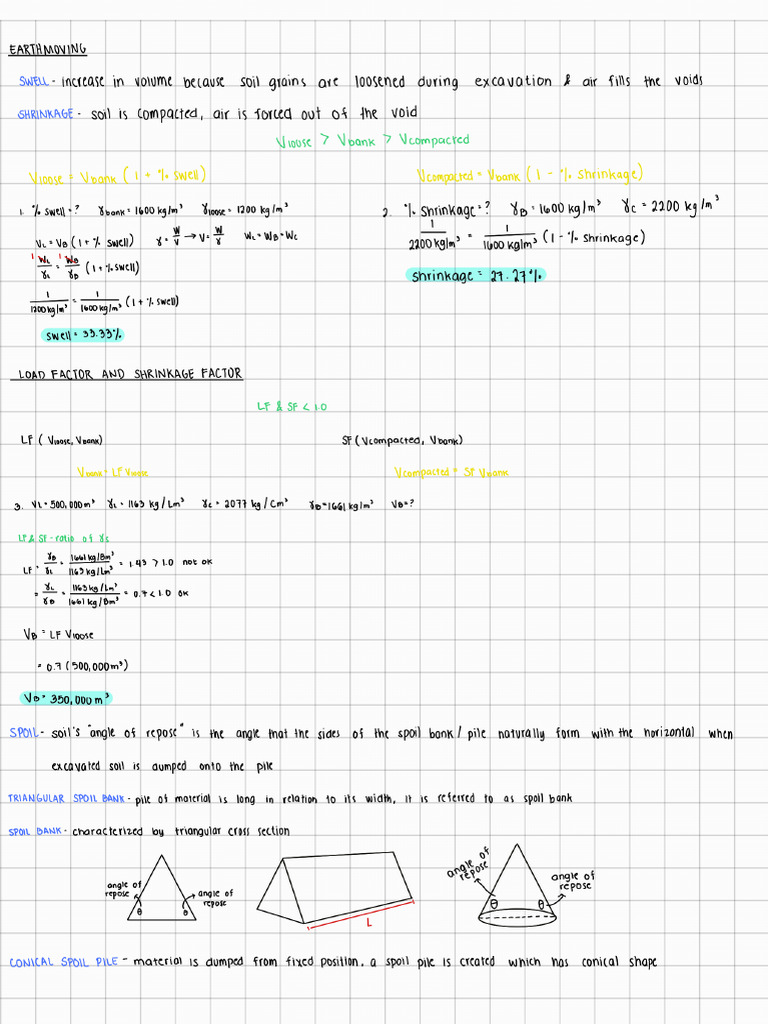 EARTHMOVING
SWELL - increase in volume because soil grains are loosened during excavation & air fills the voids
SHRINKAGE - soil is compacted, air is forced out of the void
Vloose > Vbank > Vcompacted
Vloose = Vbank (1 + % swell)
Vcompacted = Vbank (1 - % shrinkage)
1. % swell = ? γbank = 1600 kg/m³ γloose = 1200 kg/m³
VL = VB (1 + % swell) γ = W/V → V = W/γ WL = WB = WC
1 WL/γL = 1 WB/γB (1 + % swell)
1/1200 kg/m³ = 1/1600 kg/m³ (1 + % swell)
swell = 33.33%
2. % shrinkage = ? γB = 1600 kg/m³ γC = 2200 kg/m³
1/2200 kg/m³ = 1/1600 kg/m³ (1 - % shrinkage)
shrinkage = 27.27%
LOAD FACTOR AND SHRINKAGE FACTOR
LF & SF < 1.0
LF (Vloose, Vbank)
SF (Vcompacted, Vbank)
Vbank = LF Vloose
Vcompacted = SF Vbank
3. VL = 500,000 m³ γL = 1163 kg/Lm³ γC = 2077 kg/Cm³ γB = 1661 kg/m³ VB = ?
LF & SF - ratio of γs
LF = γB/γL = 1661 kg/Bm³ / 1163 kg/Lm³ = 1.43 > 1.0 not ok
= γL/γB = 1163 kg/Lm³ / 1661 kg/Bm³ = 0.7 < 1.0 ok
VB = LF Vloose
= 0.7 (500,000 m³)
VB = 350,000 m³
SPOIL - soil's "angle of repose" is the angle that the sides of the spoil bank / pile naturally form with the horizontal when
excavated soil is dumped onto the pile
TRIANGULAR SPOIL BANK - pile of material is long in relation to its width, it is referred to as spoil bank
SPOIL BANK - characterized by triangular cross section
angle of
repose
θ
θ
angle of
repose
L
angle of
repose
θ
θ
angle of
repose
CONICAL SPOIL PILE - material is dumped from fixed position, a spoil pile is created which has conical shape